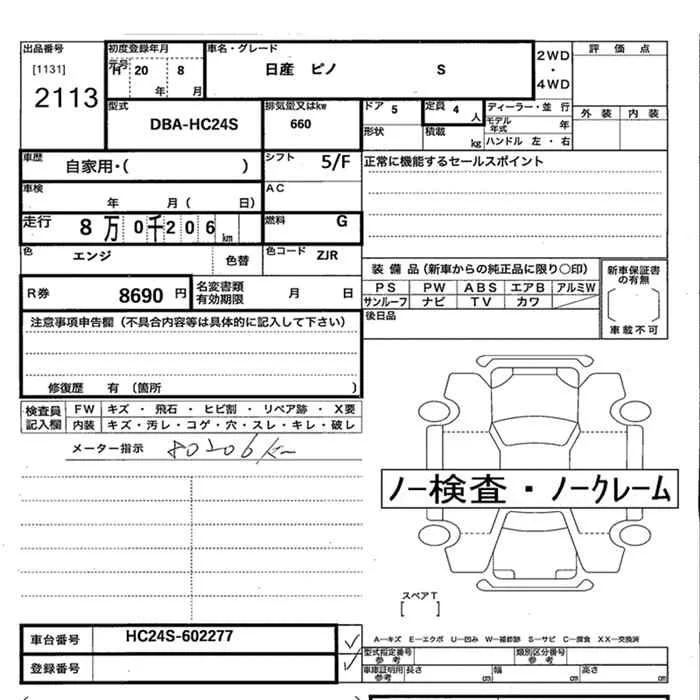 出品番号 初度登録年月 車名・グレード 2WD・4WD 評価点
[1131] 元号 H 20 8 日産 ピノ S
2113 年 月 外装 内装
型式 排気量又はkw ドア 5 定員 4 人 ディーラー・並行
DBA-HC24S 660 モデル年式 年
形状 積載 kg ハンドル 左・右
車歴 自家用・( ) シフト 5/F 正常に機能するセールスポイント
車検 年 月( 日) AC
走行 8万0千206km 燃料 G
色 エンジ 色替 色コード ZJR 装備品(新車からの純正品に限り○印) 新車保証書の有無
R券 8690円 名変書類有効期限 月 日 PS PW ABS エアB アルミW
サンルーフ ナビ TV カワ
後日品 車載不可
注意事項申告欄(不具合内容等は具体的に記入して下さい)
修復歴 有 (箇所 )
検査員記入欄 FW キズ・飛石・ヒビ割・リペア跡・X要
内装 キズ・汚レ・コゲ・穴・スレ・キレ・破レ
メーター指示 80206km
ノー検査・ノークレーム
スペアT
[ ]
車台番号 HC24S-602277 ✓
A―キズ E―エクボ U―凹み W―補修跡 S―サビ C―腐食 XX―交換済
型式指定番号 参考 類別区分番号 参考
登録番号 ✓ 車庫証明用 参考 長さ cm 幅 cm 高さ cm